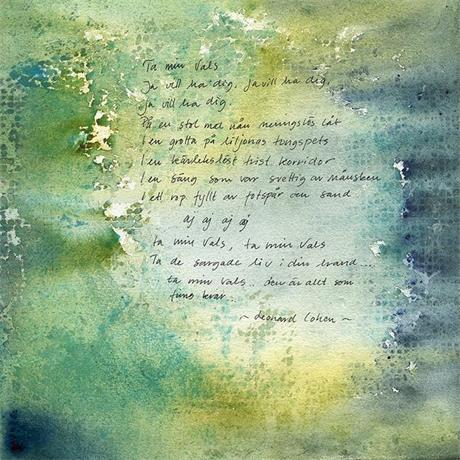 Ta min vals
Ja vill ha dig, ja vill ha dig,
ja vill ha dig.
På en stol med nån meningslös låt
I en grotta på liljonas tungspets
I en kärlekslöst trist korridor
I en säng som var svettig av månsken
I ett rop fyllt av fotspår och sand
aj aj aj aj
ta min vals, ta min vals
Ta de sargade liv i din hand
ta min vals.. den är allt som
finns kvar.
~ Leonard Cohen ~